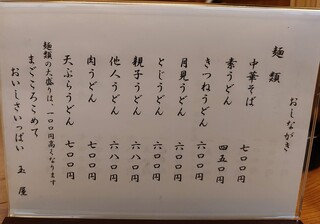 おしながき
麺類
中華そば 七〇〇円
素うどん 四五〇円
きつねうどん 六〇〇円
月見うどん 六〇〇円
とじうどん 六〇〇円
親子うどん 六八〇円
他人うどん 六八〇円
肉うどん 七〇〇円
天ぷらうどん 七〇〇円
麺類の大盛りは、一〇〇円高くなります
まごころこめて
おいしさいっぱい 玉屋